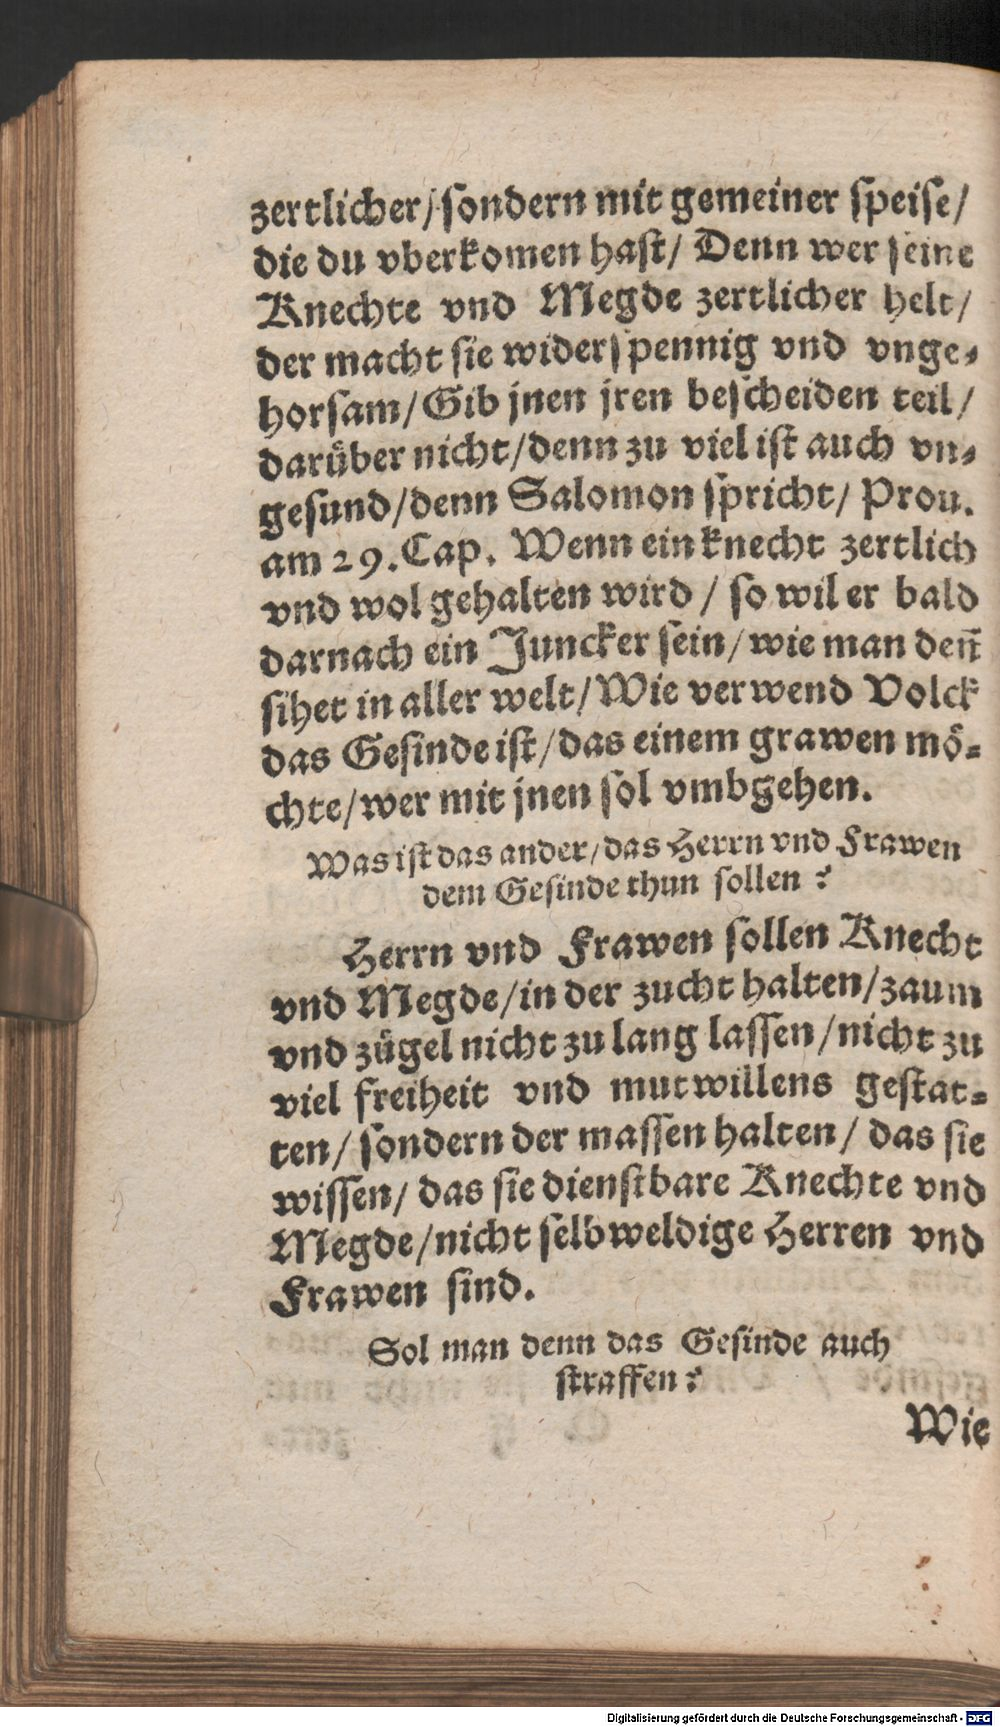 zertlicher/ sondern mit gemeiner speise/
die du vberkomen hast/ Denn wer seine
Knechte vnd Megde zertlicher helt/
der macht sie widerspennig vnd vnge-
horsam/ Gib jnen jren bescheiden teil/
darüber nicht/ denn zu viel ist auch vn-
gesund/ denn Salomon spricht/ Prou.
am 29. Cap. Wenn ein knecht zertlich
vnd wol gehalten wird / so wil er bald
darnach ein Juncker sein/ wie man den̄
sihet in aller welt/ Wie verwend Volck
das Gesinde ist/ das einem grawen mö-
chte/ wer mit jnen sol vmbgehen.
Was ist das ander/ das Herrn vnd Frawen
dem Gesinde thun sollen?
Herrn vnd Frawen sollen Knecht
vnd Megde/ in der zucht halten/ zaum
vnd zügel nicht zu lang lassen/ nicht zu
viel freiheit vnd mutwillens gestat-
ten/ sondern der massen halten/ das sie
wissen/ das sie dienstbare Knechte vnd
Megde/ nicht selbweldige Herren vnd
Frawen sind.
Sol man denn das Gesinde auch
straffen?
Wie
Digitalisierung gefördert durch die Deutsche Forschungsgemeinschaft - DFG